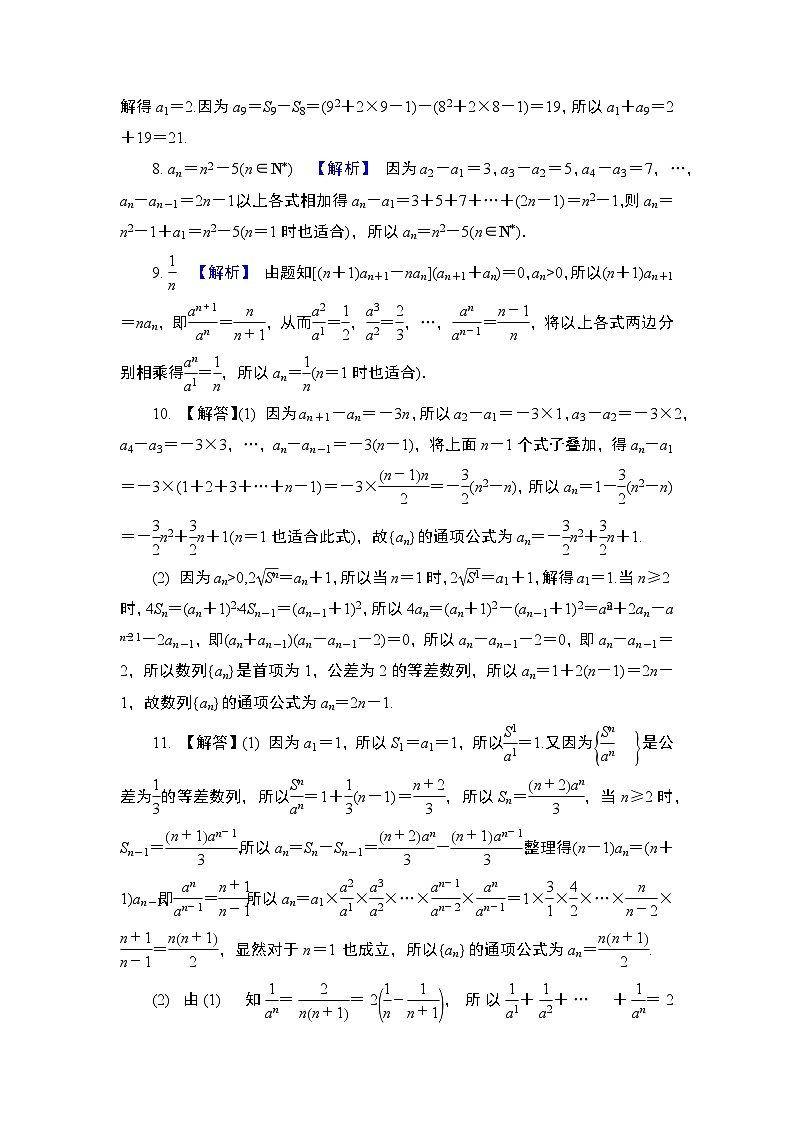 解得a₁=2.因为a₉=S₉-S₈=(9²+2×9-1)-(8²+2×8-1)=19,所以a₁+a₉=2
+19=21.
8. aₙ=n²-5(n∈N*) 【解析】 因为a₂-a₁=3,a₃-a₂=5,a₄-a₃=7,…,
aₙ-aₙ₋₁=2n-1,以上各式相加得aₙ-a₁=3+5+7+…+(2n-1)=n²-1,则aₙ=
n²-1+a₁=n²-5(n=1时也适合),所以aₙ=n²-5(n∈N*).
9. 1/n 【解析】 由题知[(n+1)aₙ₊₁-naₙ](aₙ₊₁+aₙ)=0,aₙ>0,所以(n+1)aₙ₊₁
=naₙ,即aₙ₊₁/aₙ=n/(n+1),从而a₂/a₁=1/2,a₃/a₂=2/3,…,aₙ/aₙ₋₁=(n-1)/n,将以上各式两边分
别相乘得aₙ/a₁=1/n,所以aₙ=1/n(n=1时也适合).
10. 【解答】(1) 因为aₙ₊₁-aₙ=-3n,所以a₂-a₁=-3×1,a₃-a₂=-3×2,
a₄-a₃=-3×3,…,aₙ-aₙ₋₁=-3(n-1),将上面n-1个式子叠加,得aₙ-a₁
=-3×(1+2+3+…+n-1)=-3×(n-1)n/2=-3/2(n²-n),所以aₙ=1-3/2(n²-n)
=-3/2n²+3/2n+1(n=1也适合此式),故{aₙ}的通项公式为aₙ=-3/2n²+3/2n+1.
(2) 因为aₙ>0,2√Sₙ=aₙ+1,所以当n=1时,2√S₁=a₁+1,解得a₁=1.当n≥2
时,4Sₙ=(aₙ+1)²,4Sₙ₋₁=(aₙ₋₁+1)²,所以4aₙ=(aₙ+1)²-(aₙ₋₁+1)²=aₙ²+2aₙ-a
ₙ₋₁²-2aₙ₋₁,即(aₙ+aₙ₋₁)(aₙ-aₙ₋₁-2)=0,所以aₙ-aₙ₋₁-2=0,即aₙ-aₙ₋₁=
2,所以数列{aₙ}是首项为1,公差为2的等差数列,所以aₙ=1+2(n-1)=2n-
1,故数列{aₙ}的通项公式为aₙ=2n-1.
11. 【解答】(1) 因为a₁=1,所以S₁=a₁=1,所以S₁/a₁=1.又因为{Sₙ/aₙ}是公
差为1/3的等差数列,所以Sₙ/aₙ=1+1/3(n-1)=(n+2)/3,所以Sₙ=(n+2)aₙ/3,当n≥2时,
Sₙ₋₁=(n+1)aₙ₋₁/3,所以aₙ=Sₙ-Sₙ₋₁=(n+2)aₙ/3-(n+1)aₙ₋₁/3,整理得(n-1)aₙ=(n+
1)aₙ₋₁,即aₙ/aₙ₋₁=(n+1)/(n-1),所以aₙ=a₁×a₂/a₁×a₃/a₂×…×aₙ₋₁/aₙ₋₂×aₙ/aₙ₋₁=1×3/1×4/2×…×n/(n-2)×
(n+1)/(n-1)=n(n+1)/2,显然对于n=1也成立,所以{aₙ}的通项公式为aₙ=n(n+1)/2.
(2) 由(1) 知1/aₙ=2/(n(n+1))=2(1/n-1/(n+1)),所以1/a₁+1/a₂+…+1/aₙ=2